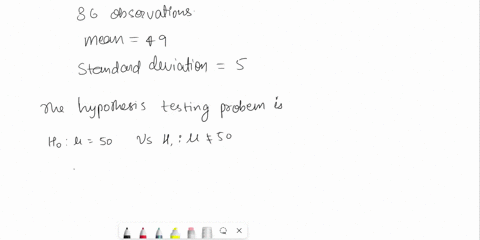 86 observations
mean = 49
Standard deviation = 5
The hypothesis testing probem is
H₀ : μ = 50 Vs H₁ : μ ≠ 50